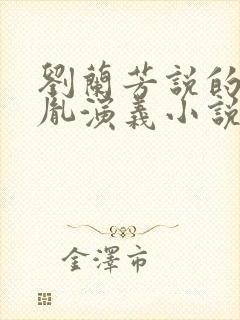 劉蘭芳說的
胤演義小說
金澤市